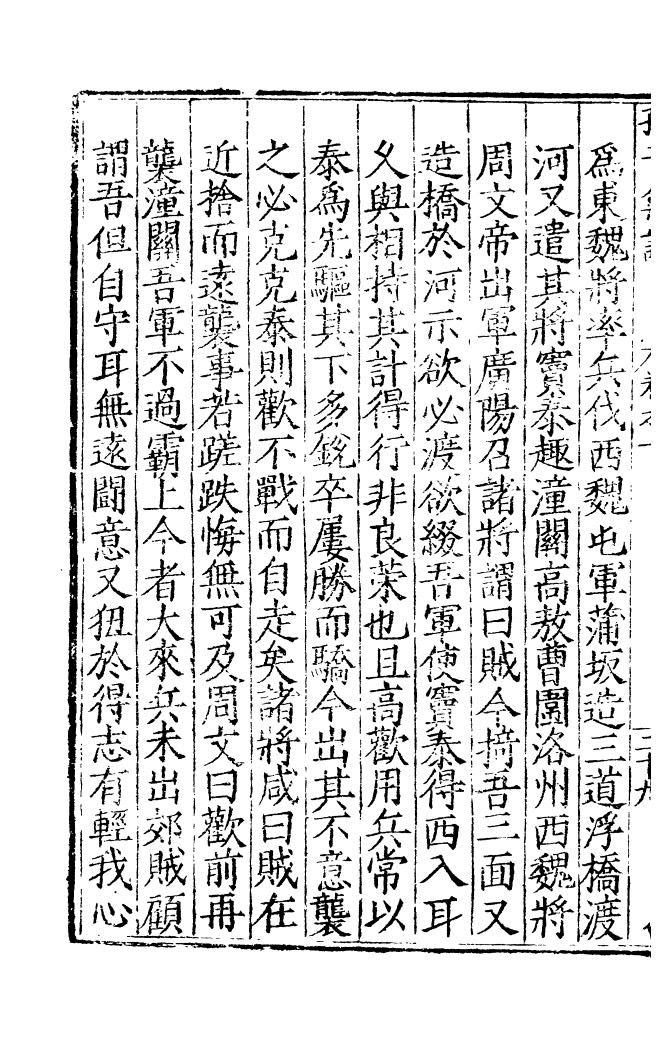 為東魏將率兵伐西魏屯軍蒲坂造三道浮橋渡
河又遣其將竇泰趣潼關高敖曹圍洛州西魏將
周文帝出軍廣陽召諸將謂曰賊今掎吾三面又
造橋於河示欲必渡欲綴吾軍使竇泰得西入耳
久與相持其計得行非良策也且高歡用兵常以
泰為先驅其下多銳卒屢勝而驕今出其不意襲
之必克克泰則歡不戰而自走矣諸將咸曰賊在
近捨而遠襲事若蹉跌悔無可及周文曰歡前再
襲潼關吾軍不過霸上今者大來兵未出郊賊顧
謂吾但自守耳無遠鬪意又狃於得志有輕我心